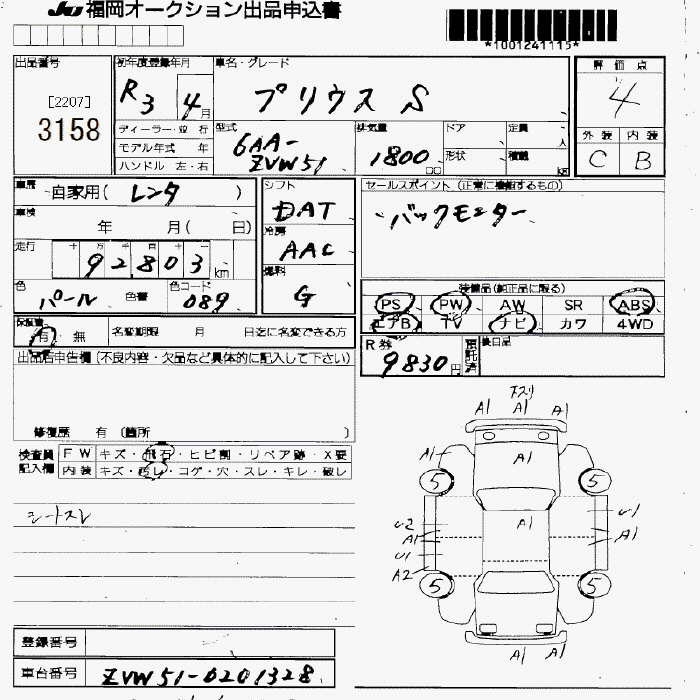 JU 福岡オークション出品申込書
*1001241115*
出品番号
[2207]
3158
初年度登録年月
R3 4月
車名・グレード
プリウス S
評価点
4
外装 内装
C B
ディーラー・並行
モデル年式 年
ハンドル 左・右
型式
6AA-
ZVW51
排気量
1800 cc
ドア
形状
定員 人
積載 kg
車歴
自家用( レンタ )
車検
年 月( 日)
走行
十 万 千 百 十 一
92803 km
色
パール 色替
色コード
089
シフト
DAT
冷房
AAC
燃料
G
セールスポイント (正常に機能するもの)
・バックモニター
装備品(純正品に限る)
PS PW AW SR ABS
エアB TV ナビ カワ 4WD
保証書
有 無
名変期限 月 日迄に名変できる方
R券
9830円
預託済
後日品
出品店申告欄(不良内容・欠品など具体的に記入して下さい)
修復歴 有 〔箇所 〕
検査員
記入欄
FW キズ・飛石・ヒビ割・リペア跡・X要
内装 キズ・汚レ・コゲ・穴・スレ・キレ・破レ
シートスレ
下スリ
A1 A1 A1
A1 A1
5 5
A1
U2 U1
A1 A1
U1
A2
5 5
A1 A1
登録番号
車台番号
ZVW51-6201328